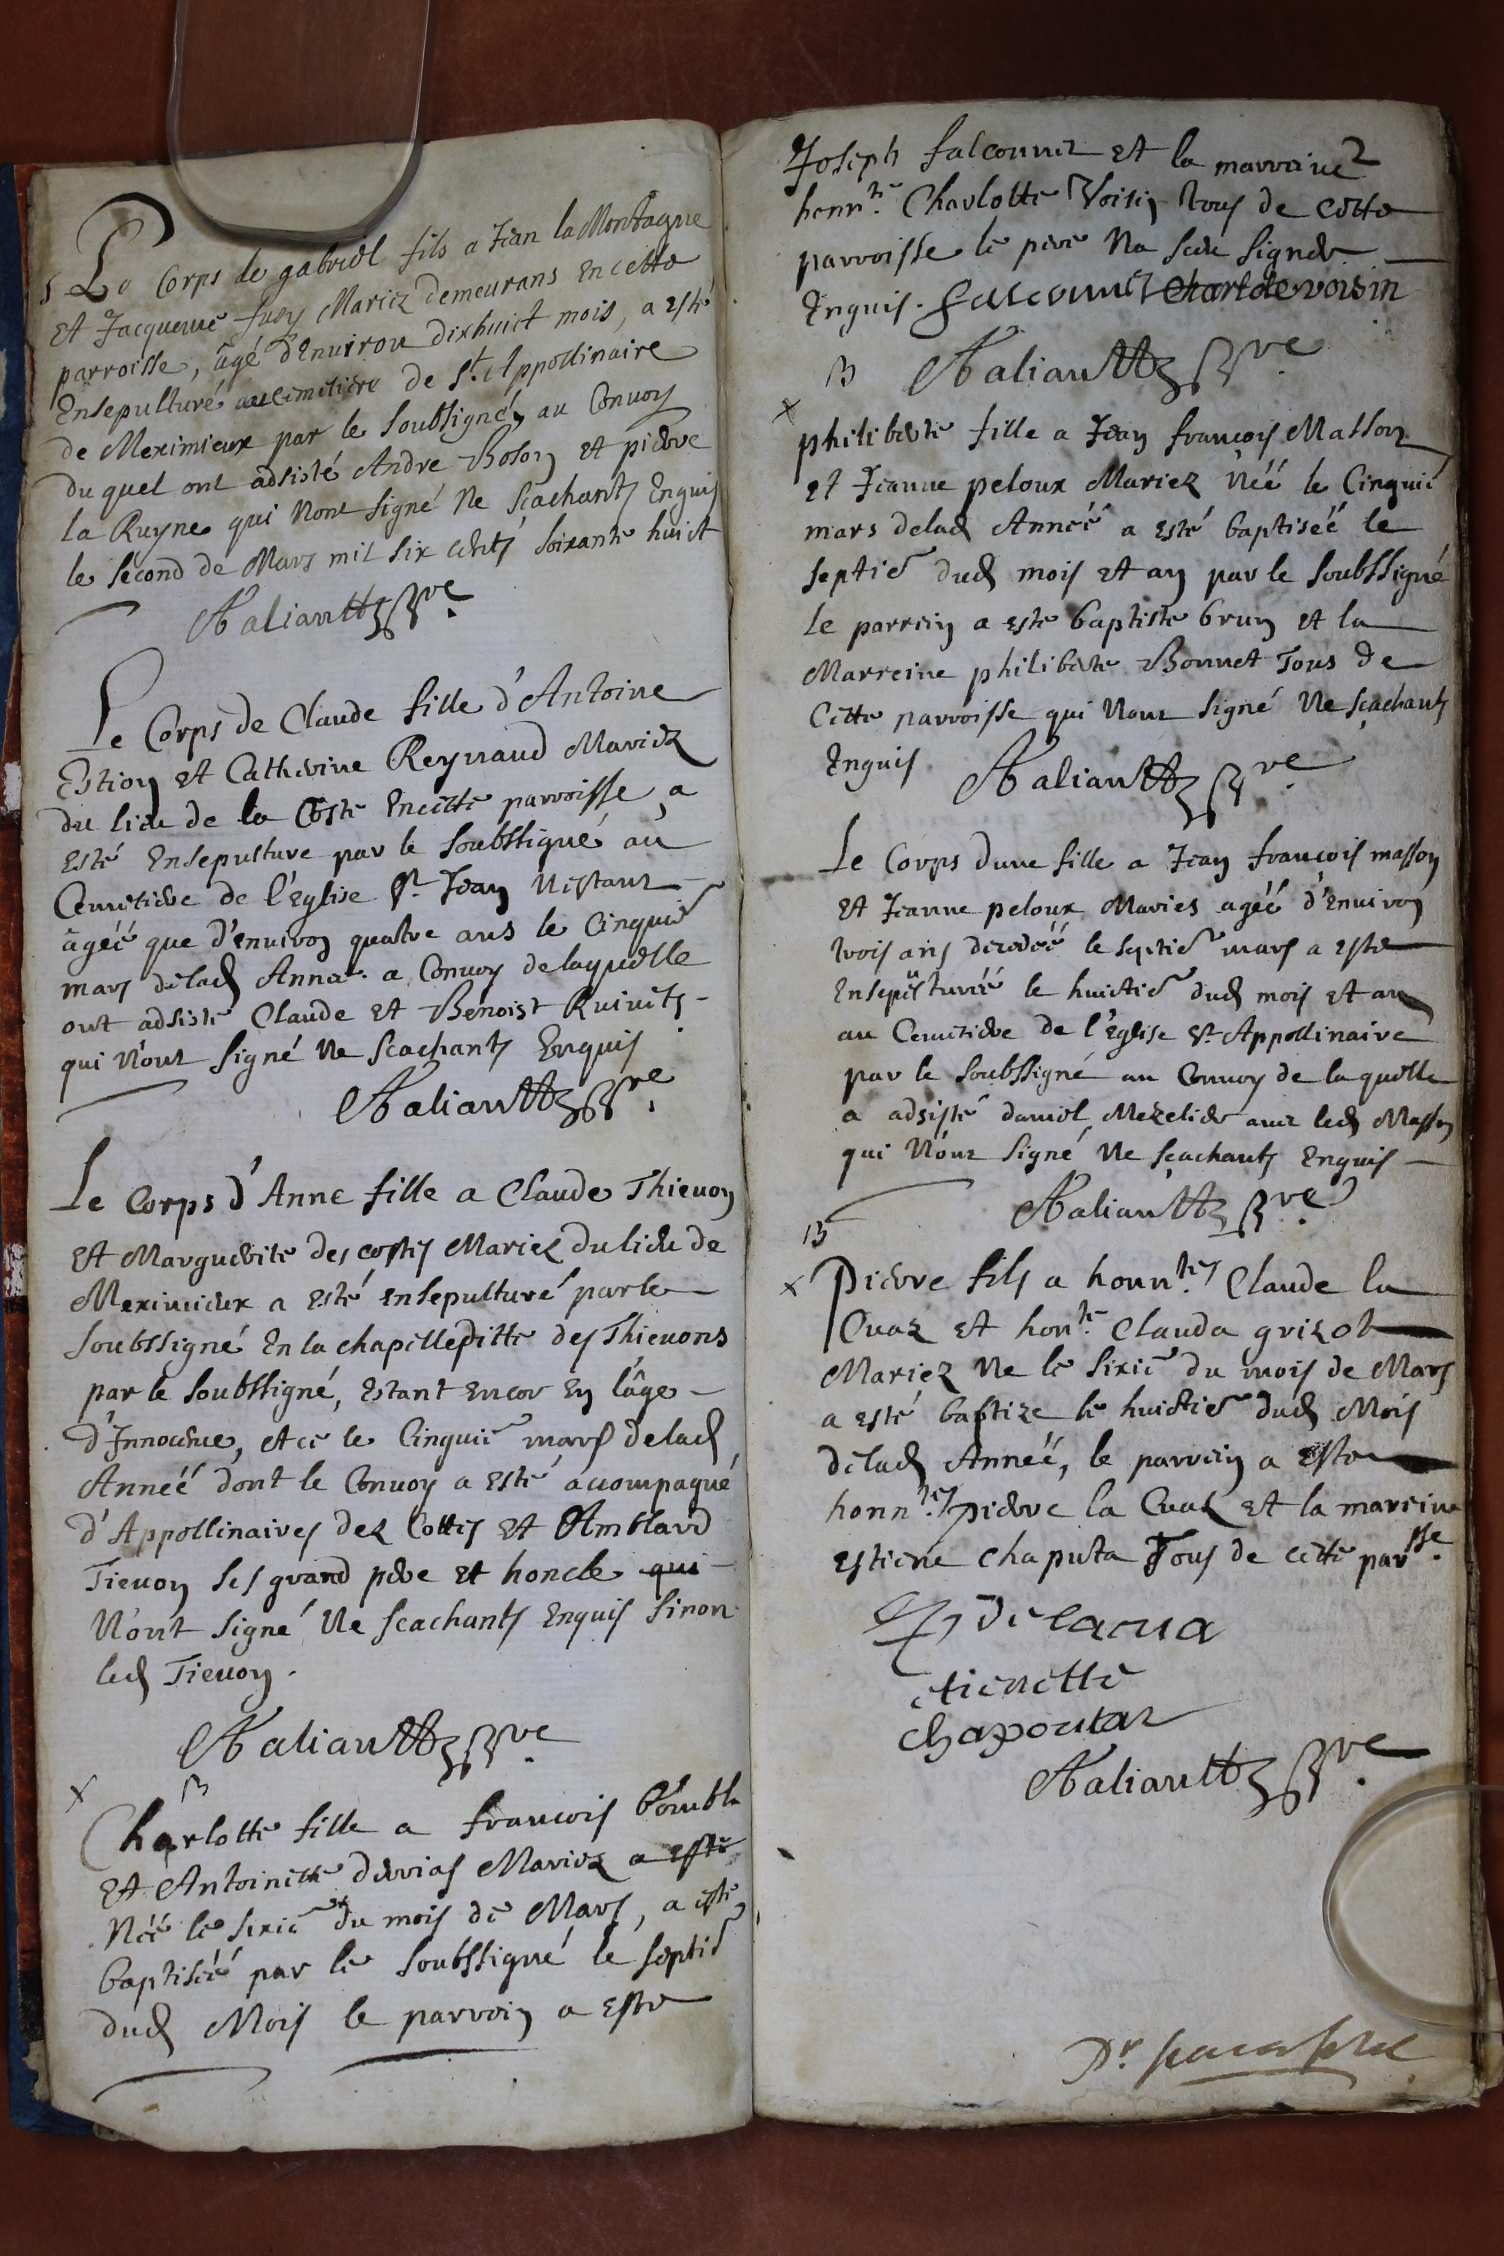 S Le Corps de gabriel fils a Jean la Montagne
Et Jacqueme Mariez demeurans En cette
parroisse, âgé d'Enuiron dixhuict mois, a esté
Ensepulturé au cimetiere de St. Appollinaire
de Meximieux par le soubsigné, au Conuoy
du quel ont adsisté Andre Boson et pierre
la Ruyne qui Nont signé Ne scachants Enquis
le second de Mars mil six cents soixante huict
Aaliaultz pbre.
Le Corps de Claude fille d'Antoine
Estion et Catherine Reynaud Mariez
du lieu de la Coste En cette parroisse a
Esté Ensepulture par le soubssigné au
Cemetiere de l'Eglise St. Jean N'estant
âgéé que d'enuiron quattre ans le Cinquie
mars de lad Année a Conuoy de laquelle
ont adsisté Claude et Benoist Ruiuets
qui N'ont signé Ne scachants Enquis
Aaliaultz pbre.
Le Corps d'Anne fille a Claude Thieuon
Et Marguerite des costes Mariez du lieu de
Meximieux a esté ensepulturé par le
soubssigné En la chapelle ditte des Thieuons
par le soubssigné, Estant encor En l'âge
d'Innocence, et ce le Cinquie mars de lad
Annéé dont le Conuoy a esté accompagné
d'Appollinaires dez Cottes et Amblard
Tieuon ses grand pere et honcle qui
N'ont signé Ne scachants Enquis sinon
led Tieuon.
Aaliaultz pbre.
x B
Charlotte fille a francois
Et Antoinette deruias Mariez a esté
Néé le sixie du mois de Mars, a esté
baptiséé par le soubssigné le septie
dud Mois le parrein a este
Joseph falconnet et la marreine
honnte. Charlotte Voisin tous de cette
parroisse le pere Na sceu signer
Enquis. falconnet Charlote voisin
B Aaliaultz pbre.
x
philiberte fille a Jean francois Masson
et Jeanne peloux Mariez Néé le Cinquie
mars de lad Annéé a esté baptiséé le
septie dud mois et an par le soubssigné
le parrein a este baptiste brun et la
Marreine philiberte Bonnet Tous de
Cette parroisse qui Nont signé Ne scachants
Enquis Aaliaultz pbre.
Le Corps d'une fille a Jean francois masson
Et Jeanne peloux Maries agéé d'Enuiron
trois ans decedéé le septie mars a este
Ensepulturéé le huictie dud mois et an
au Cemetiere de l'Eglise St. Appollinaire
par le soubssigné au Conuoy de laquelle
a adsisté daniel Mezelier auec led Masson
qui N'ont signé Ne scachants Enquis
Aaliaultz pbre.
B
x Pierre fils a honntes. Claude la
Cuaz et honte. Clauda grizot
Mariez Ne le sixie du mois de Mars
a esté baptize le huictie dud Mois
de lad Annéé, le parrein a este
honntes. pierre la Cuaz et la mareine
estiene chaputa Tous de cette parsse.
delacua
etienette
chapoutar
Aaliaultz pbre.